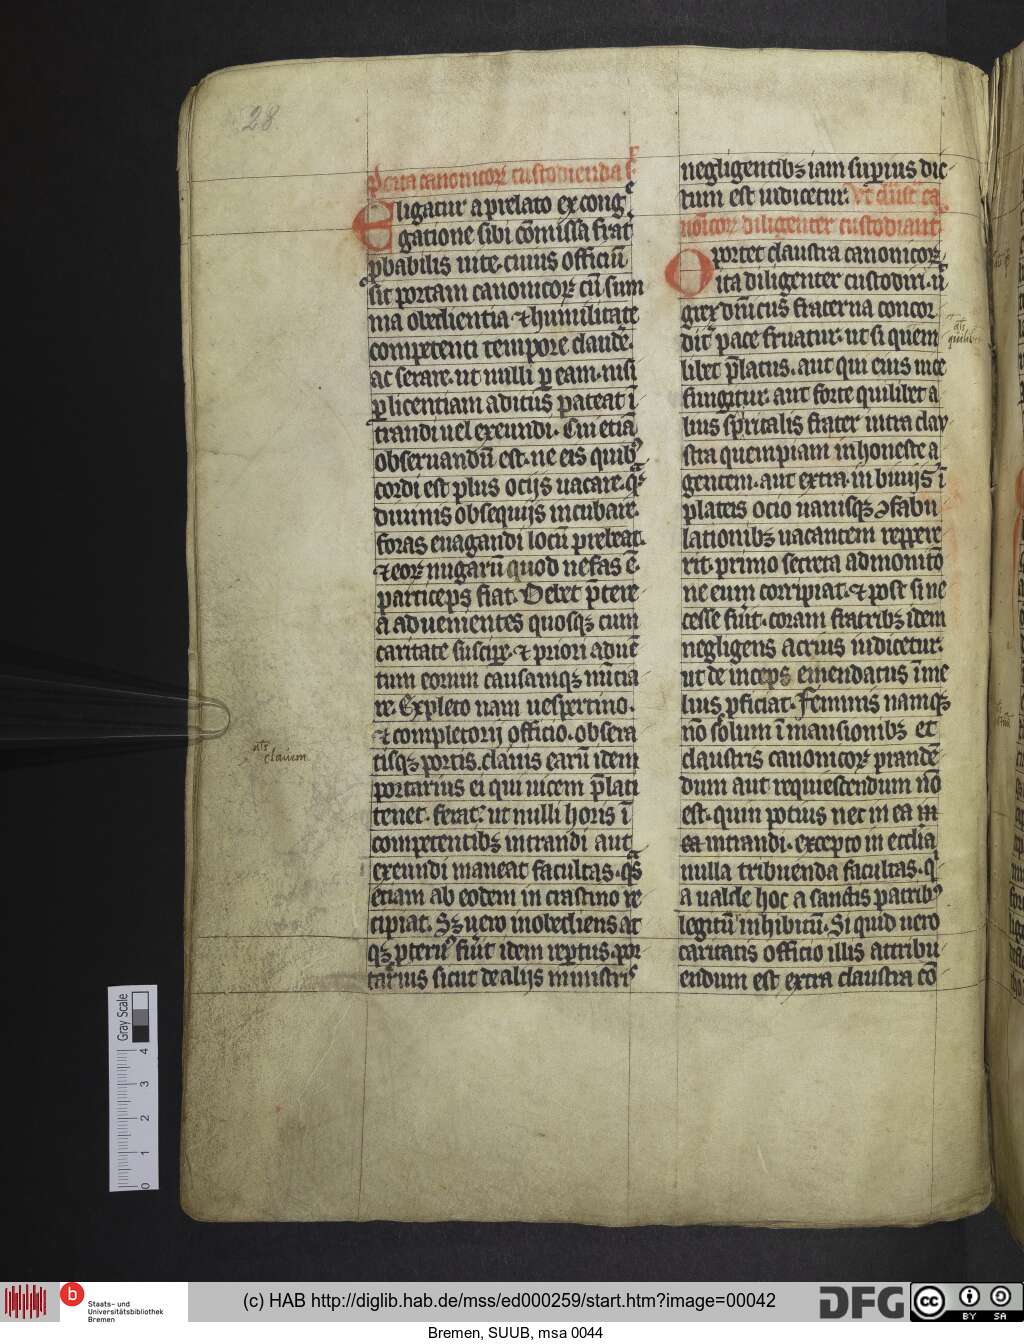 28.
porta canonicoꝝ custodienda sʳ
Eligatur a prelato ex congͬ
gatione sibi cōmissa frat̾
ꝓbabilis uite. cuius officiū
sit portam canonicoꝝ cū sum
ma obedientia ⁊ humilitate
competenti tempore claude͛
ac serare. ut nulli p̱ eam. nisi
p̱ licentiam aditus pateat ī
trandi uel exeundi. Cui etiā
obseruandū est. ne eis quibꝰ
cordi est plus ocijs uacare. qͣ
diuinis obsequijs incubare.
foras euagandi locū prebeat.
⁊ eoꝝ nugarū quod nefas ē.
particeps fiat. Debet p̄tere
a aduenientes quosqꝫ cum
caritate suscipe͛. ⁊ priori aduē
tum eorum causamqꝫ nūtia
re. Expleto nam uespertino.
⁊ completorij officio. obsera
tisqꝫ portis. clauis earū idem
portarius ei qui uicem p̄lati
tenet. ferat. ut nulli horis ī
competentibꝫ intrandi aut
exeundi maneat facultas. qͣs
etiam ab eodem in crastino re
cipiat. Sꝫ uero inobediens at
qꝫ ꝓteruꝰ fūit idem rep̱tus. por
tarius sicut de alijs ministrꝭ
als
clauem
negligentibꝫ iam supius dic
tum est iudicetur. Vt claustra ca
nonicoꝝ diligenter custodiant͛
Oportet claustra canonicoꝝ
ita diligenter custodiri. ū
grex dn̄icus fraterna concor
dit͛ pace fruatur. ut si quem
libet p̄latus. aut qui eius uice
fungit̾ur. aut forte quilibet a
lius sp̄ritalis frater intra clau
stra quempiam inhoneste a
gentem. aut extra. in biuijs ī
plateis ocio uanisqꝫ ꝯfabu
lationibꝫ uacantem reppere
rit. primo secreta admonitō
ne eum corripiat. ⁊ post si ne
cesse fūit. coram fratribꝫ idem
negligens acrius iudicetur.
ut de inceps emendatus ī me
lius ꝓficiat. Feminis namqꝫ
nō solum ī mansionibꝫ et
claustris canonicoꝝ prandē
dum aut requiescendum nō
est. quin potius nec in ea in
ea intrandi. excepto in eccl̄ia
nulla tribuenda facultas. qͥ
a ualde hoc a sanctis patribꝰ
legitū inhibitū. Si quid uero
caritatis officio illis attribu
endum est extra claustra cō
als
quilib
Gray Scale
4
3
2
1
0
b
Staats- und
Universitätsbibliothek
Bremen
(c) HAB http://diglib.hab.de/mss/ed000259/start.htm?image=00042
DFG
cc
BY SA
Bremen, SUUB, msa 0044